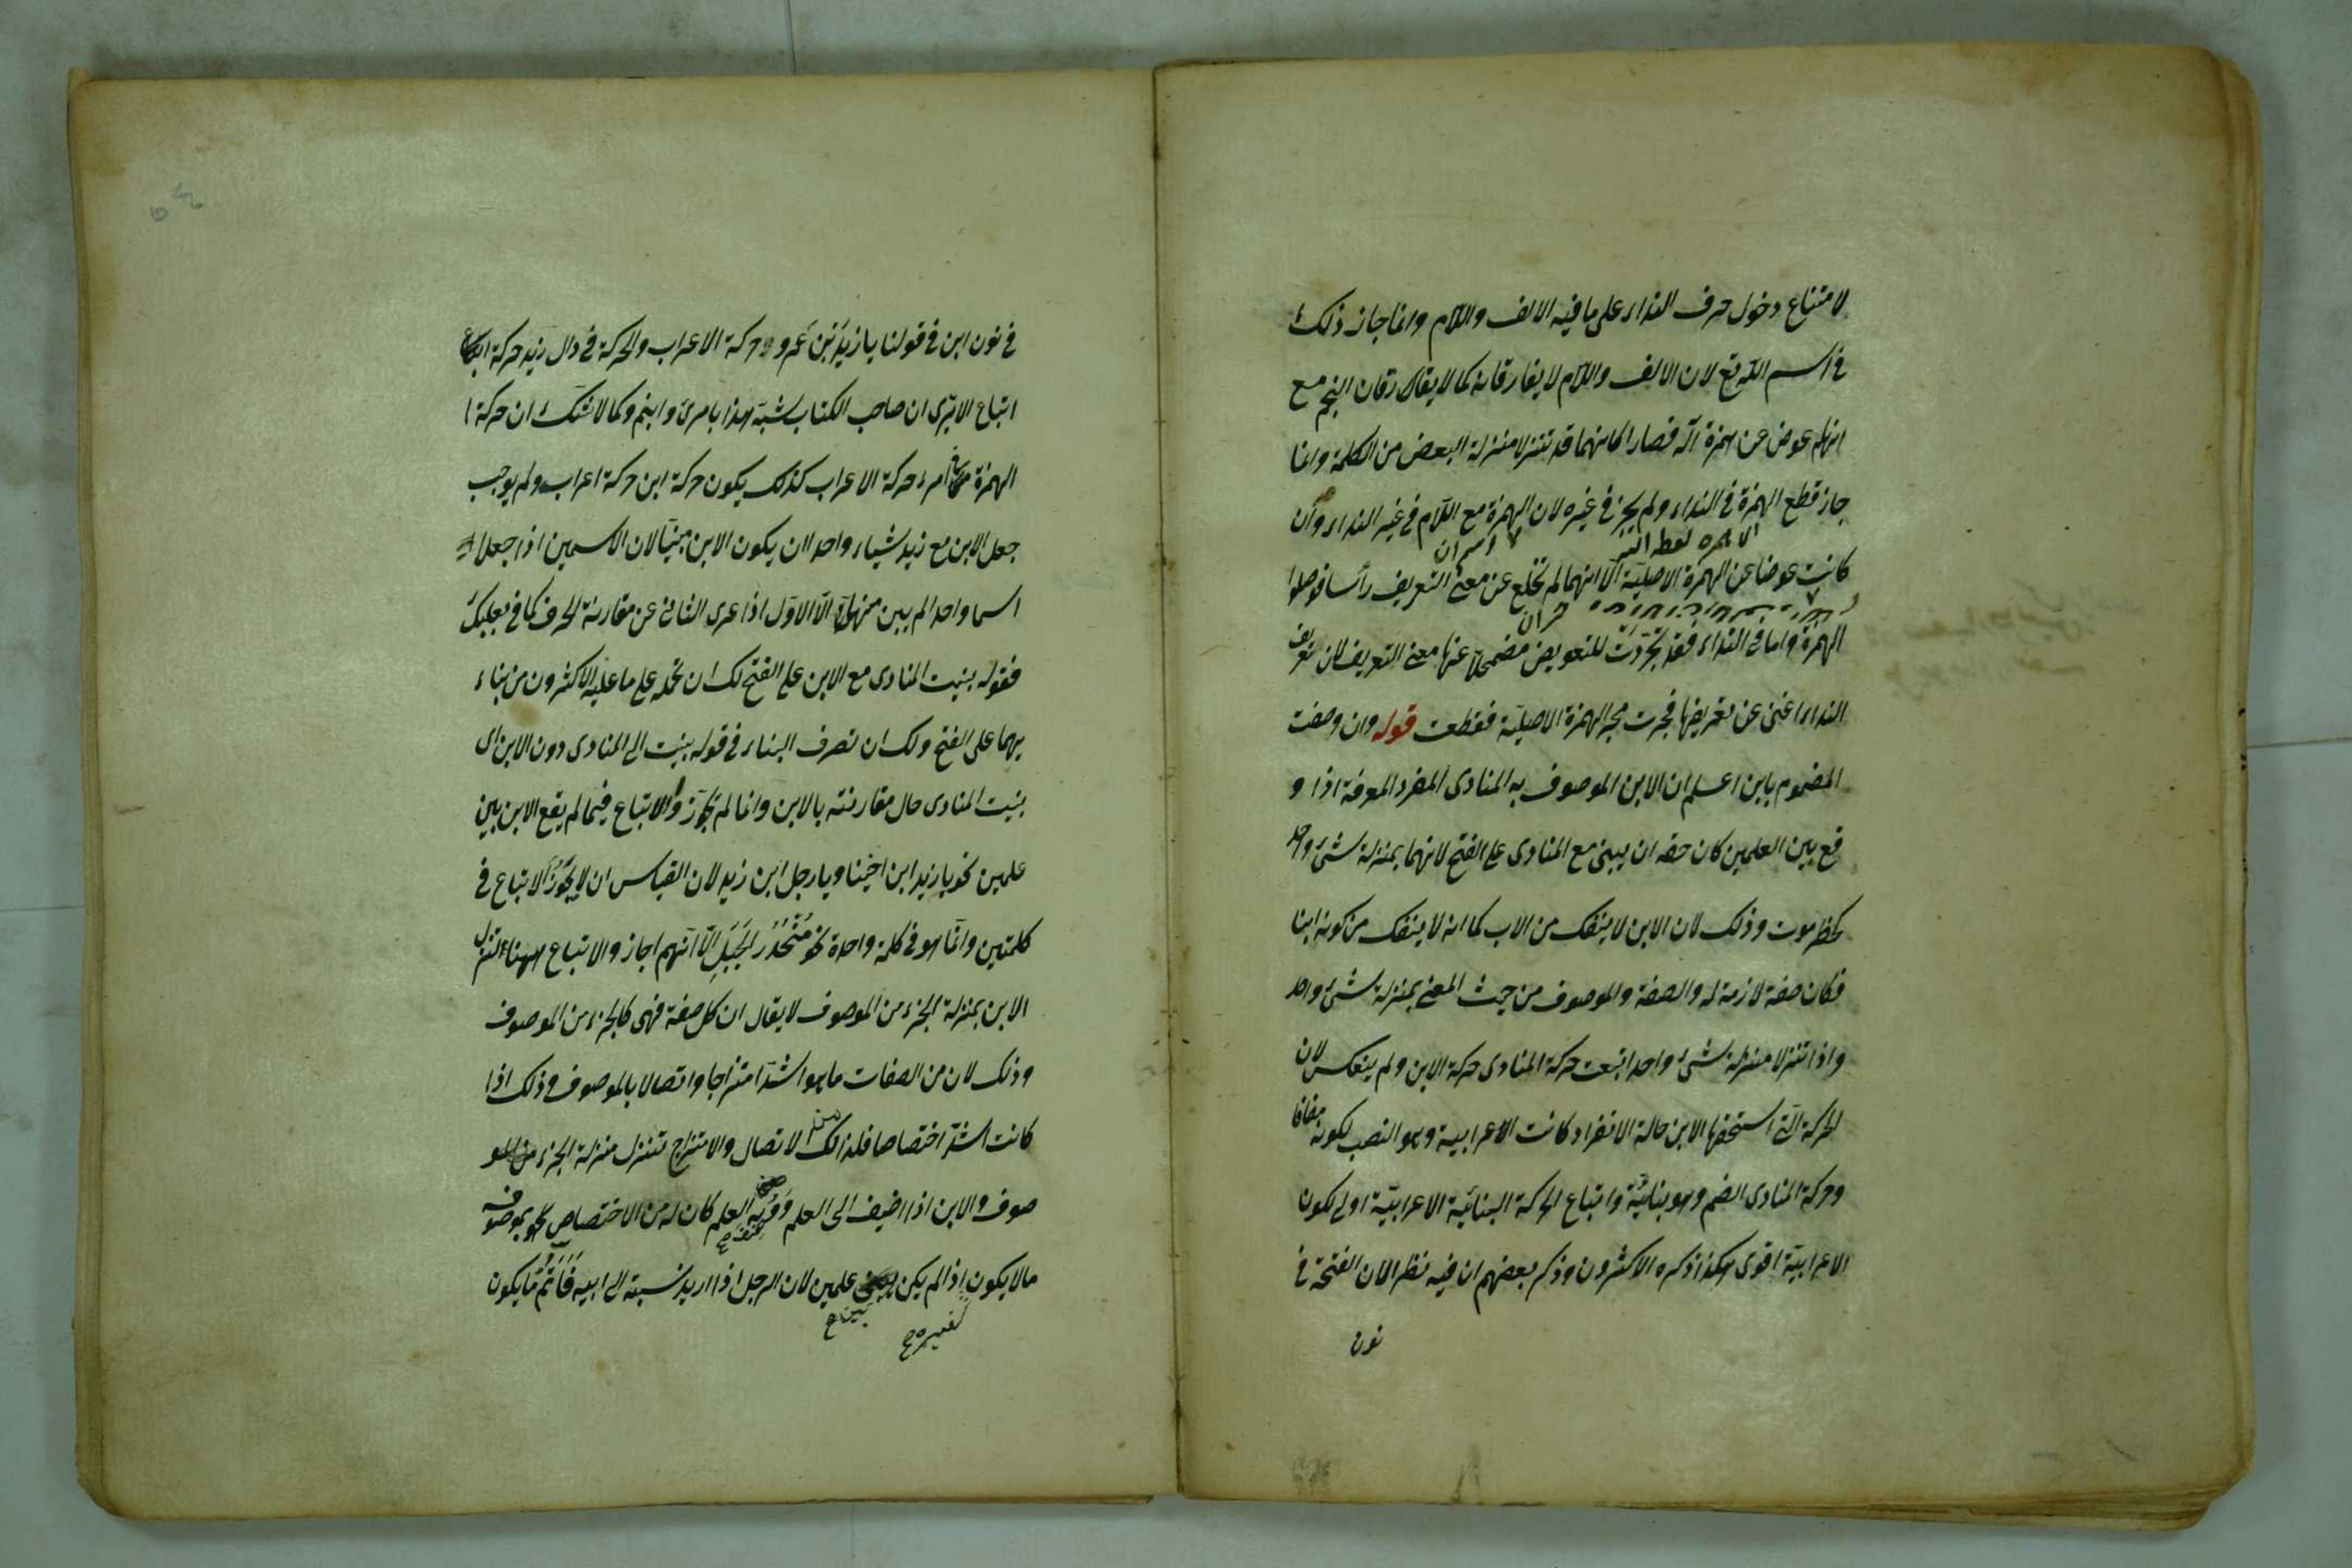 لامتناع دخول حرف النداء على ما فيه الالف واللام وانما جاز ذلك
في اسم الله تع لان الالف واللام لا يفارقانه كما لا يفارقان النجم مع
انهما عوض عن همزة اله فصارا كانهما قد تنزلا منزلة البعض من الكلمة وانما
جاز قطع الهمزة في النداء ولم يجز في غيره لان الهمزة مع اللام في غير النداء وان
كانت عوضا عن الهمزة الاصلية الا انهما لم تخلع عن معنى التعريف رأسا فوصلوا
الهمزة واما في النداء فقد تجردت للتعويض مضمحلا عنها معنى التعريف لان تعريف
النداء اغنى عن تعريفها فجرت مجرى الهمزة الاصلية فقطعت قوله وان وصفت
المضموم بابن اعلم ان الابن الموصوف به المنادى المفرد المعرفة اذا و
قع بين العلمين كان حقه ان يبنى مع المنادى على الفتح لانهما بمنزلة شئ واحد
كحضرموت وذلك لان الابن لا ينفك من الاب كما انه لا ينفك من كونه ابنا
فكان صفة لازمة له والصفة والموصوف من حيث المعنى بمنزلة شئ واحد
واذا تنزلا منزلة شئ واحد اتبعت حركة المنادى حركة الابن ولم ينعكس لان
الحركة التي استحقها الابن حالة الانفراد كانت الاعرابية وهو النصب لكونه مضافا
وحركة المنادى الضم وهو بنائية واتباع الحركة البنائية الاعرابية اولى لكون
الاعرابية اقوى هكذا ذكره الاكثرون وذكر بعضهم ان فيه نظر الان الفتحة في
نون
في نون ابن في قولنا يا زيد بن عمرو حركة الاعراب والحركة في دال زيد حركة
اتباع الا يرى ان صاحب الكتاب شبه هذا بامرئ وابنم وكما لا شك ان حركة
الهمزة امرء حركة الاعراب كذلك يكون حركة ابن حركة اعراب ولم يوجب
جعل الابن مع زيد شياء واحدا ان يكون الابن مبنيا لان الاسمين اذا جعلا
اسما واحدا لم يبين منهما الا الاول اذا عرى الثاني عن مقارنة الحرف كما في بعلبك
فقوله بنيت المنادى مع الابن على الفتح لك ان تحمله على ما عليه الاكثرون من بناء
يهما على الفتح ولك ان تصرف البناء في قوله بنيت الى المنادى دون الابن اى
بنيت المنادى حال مقارنته بالابن وانما لم تجوز والاتباع فيما لم يقع الابن بين
علمين نحو يا زيد ابن اخينا ويا رجل ابن زيد لان القياس ان لا يجوز الاتباع في
كلمتين وانما هو في كلمة واحدة نحو منحدر الجبل الا انهم اجاز والاتباع ههنا لتنزل
الابن بمنزلة الجزء من الموصوف لا يقال ان كل صفة فهى كالجزء من الموصوف
وذلك لان من الصفات ما هو اشد امتزاجا واتصالا بالموصوف وذلك اذا
كانت اشد اختصاصا فلذلك لاتصال والامتزاج تتنزل منزلة الجزء من المو
صوف والابن اذا اضيف الى العلم العلم كان له من الاختصاص بموصوفه
ما لا يكون اذا لم يكن علمين لان الرجل اذا اريد نسبته الى ابيه يكون